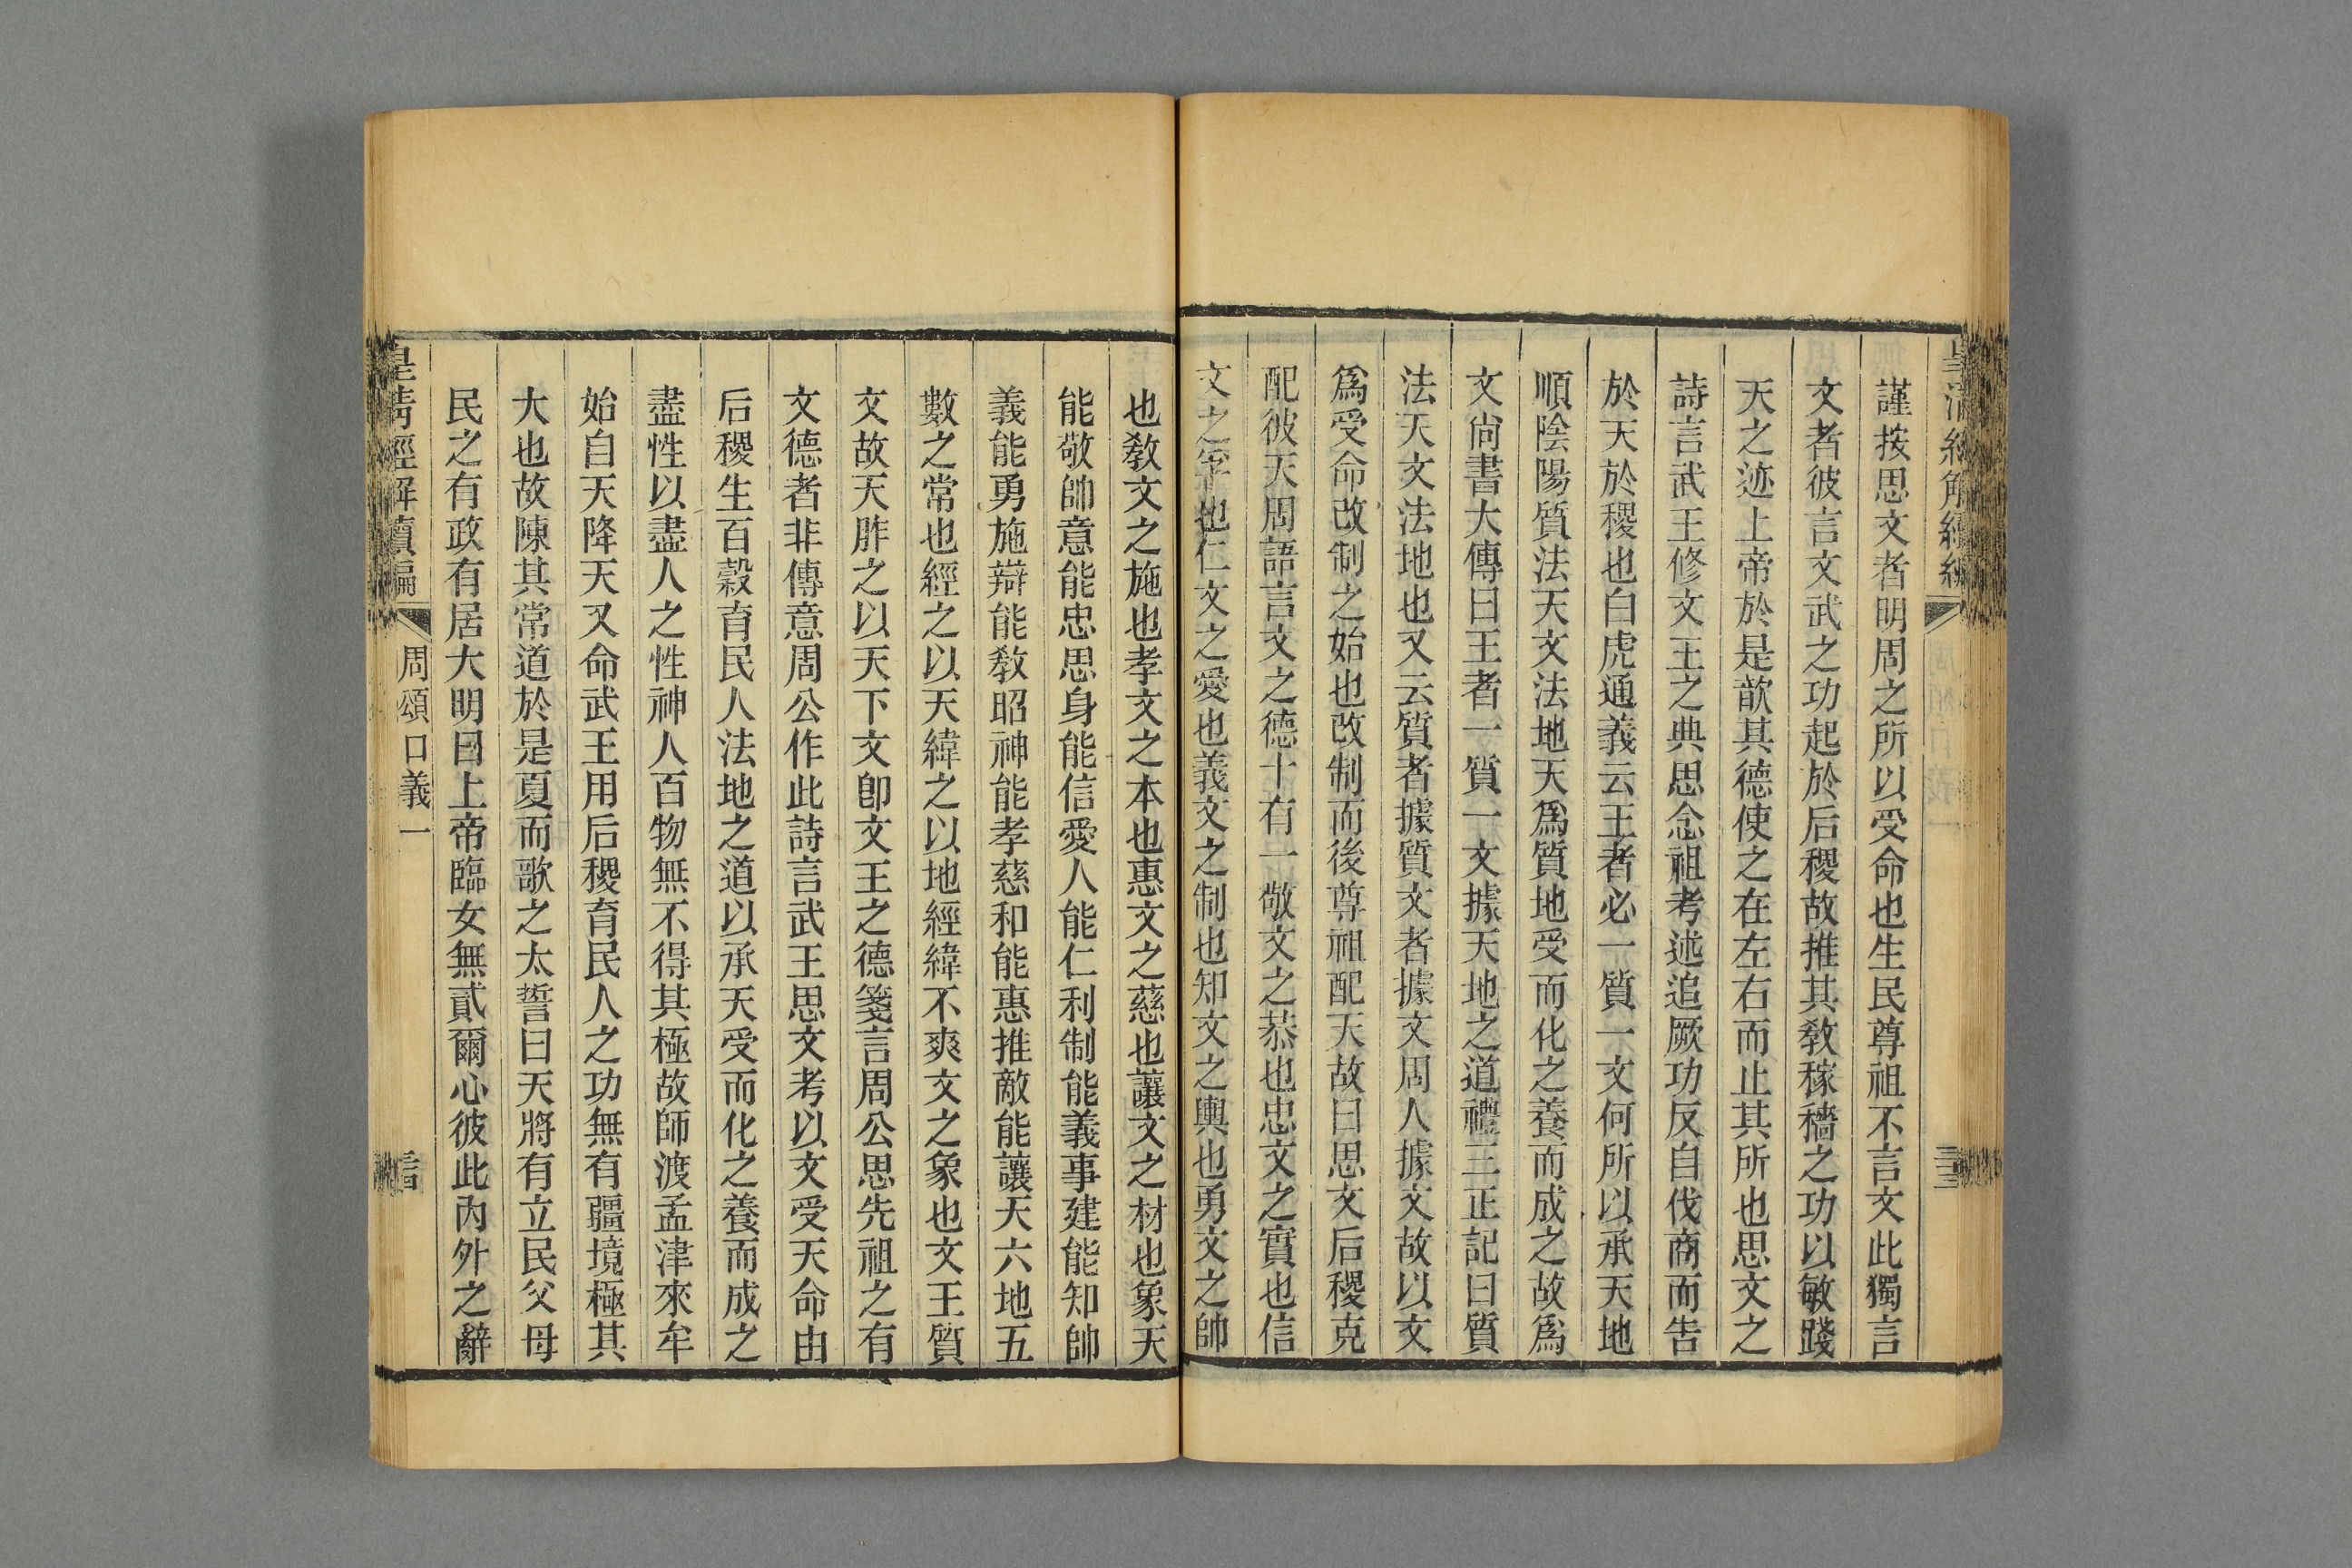 謹按思文者明周之所以受命也生民尊祖不言文此獨言
文者彼言文武之功起於后稷故推其敎稼穡之功以敏踐
天之迹上帝於是歆其德使之在左右而止其所也思文之
詩言武王修文王之典思念祖考述追厥功反自伐商而告
於天於稷也白虎通義云王者必一質一文何所以承天地
順陰陽質法天文法地天爲質地受而化之養而成之故爲
文尙書大傳曰王者一質一文據天地之道禮三正記曰質
法天文法地也又云質者據質文者據文周人據文故以文
爲受命改制之始也改制而後尊祖配天故曰思文后稷克
配彼天周語言文之德十有一敬文之恭也忠文之實也信
文之孚也仁文之愛也義文之制也知文之輿也勇文之帥
也敎文之施也孝文之本也惠文之慈也讓文之材也象天
能敬帥意能忠思身能信愛人能仁利制能義事建能知帥
義能勇施辯能敎昭神能孝慈和能惠推敵能讓天六地五
數之常也經之以天緯之以地經緯不爽文之象也文王質
文故天胙之以天下文卽文王之德箋言周公思先祖之有
文德者非傳意周公作此詩言武王思文考以文受天命由
后稷生百穀育民人法地之道以承天受而化之養而成之
盡性以盡人之性神人百物無不得其極故師渡孟津來牟
始自天降天又命武王用后稷育民人之功無有疆境極其
大也故陳其常道於是夏而歌之太誓曰天將有立民父母
民之有政有居大明曰上帝臨女無貳爾心彼此內外之辭
皇清經解續編
周頌口義一